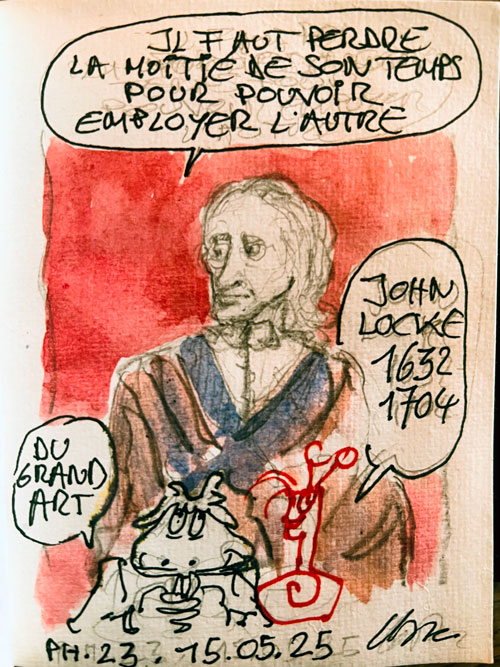 IL FAUT PERDRE
LA MOITIE DE SON TEMPS
POUR POUVOIR
EMPLOYER L'AUTRE
JOHN
LOCKE
1632
1704
DU
GRAND
ART
PH. 23. 15.05.25